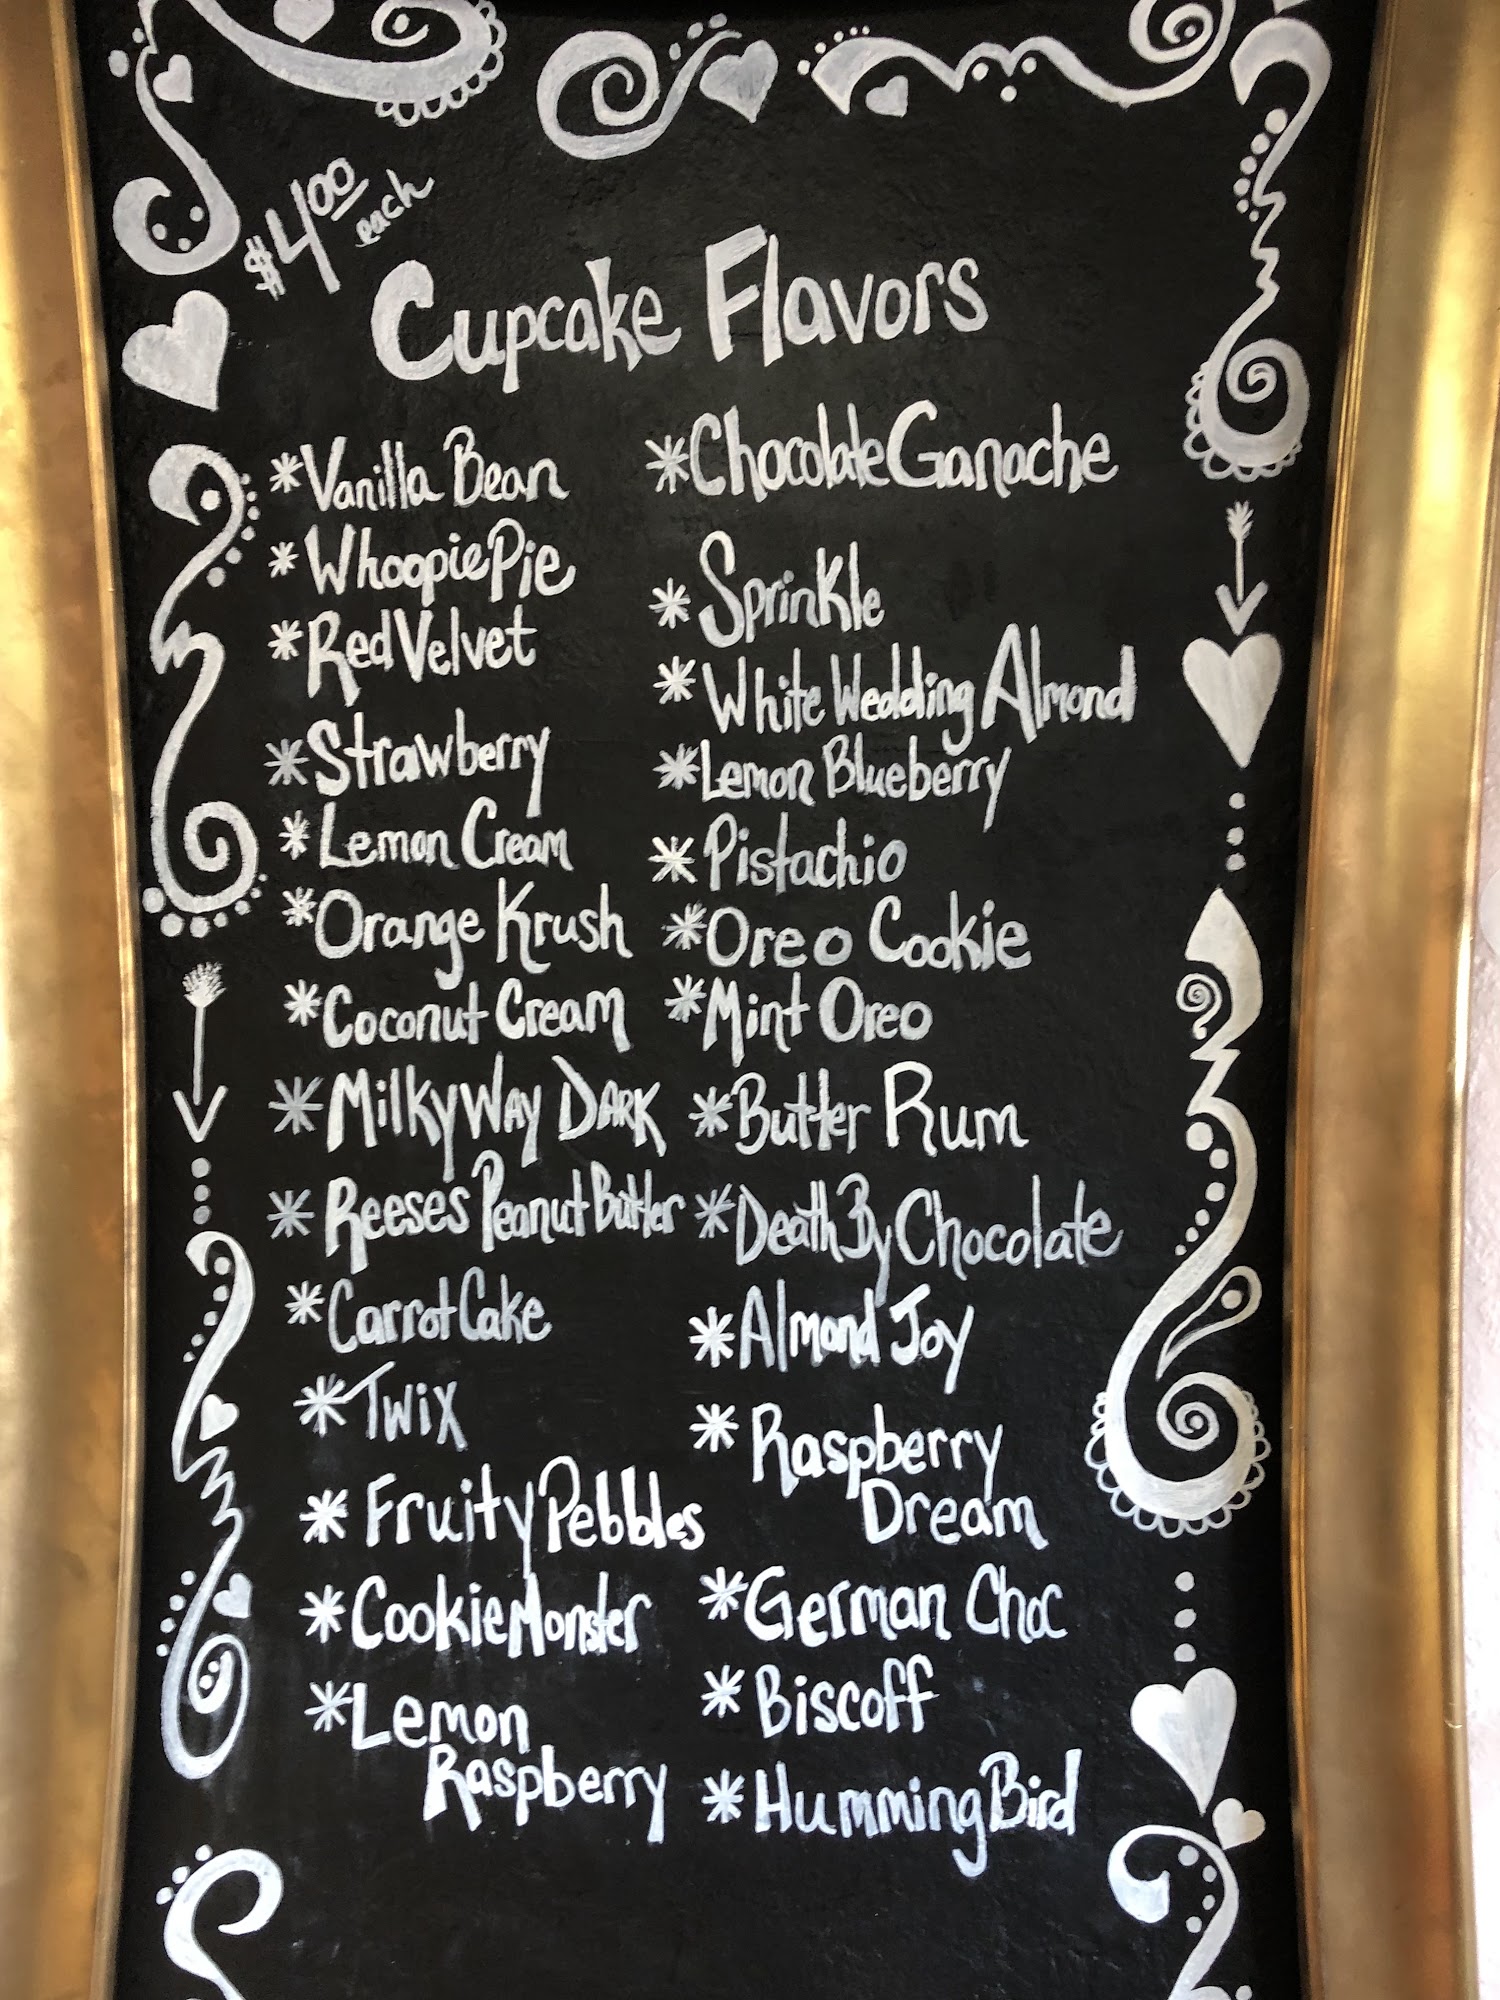 $4.00 each
Cupcake Flavors
*Vanilla Bean
*Whoopie Pie
*Red Velvet
*Strawberry
*Lemon Cream
*Orange Krush
*Coconut Cream
*Milky Way Dark
*Reeses Peanut Butter
*Carrot Cake
*Twix
*Fruity Pebbles
*Cookie Monster
*Lemon
Raspberry
*Chocolate Ganache
*Sprinkle
*White Wedding Almond
*Lemon Blueberry
*Pistachio
*Oreo Cookie
*Mint Oreo
*Butter Rum
*Death By Chocolate
*Almond Joy
*Raspberry
Dream
*German Choc
*Biscoff
*Humming Bird